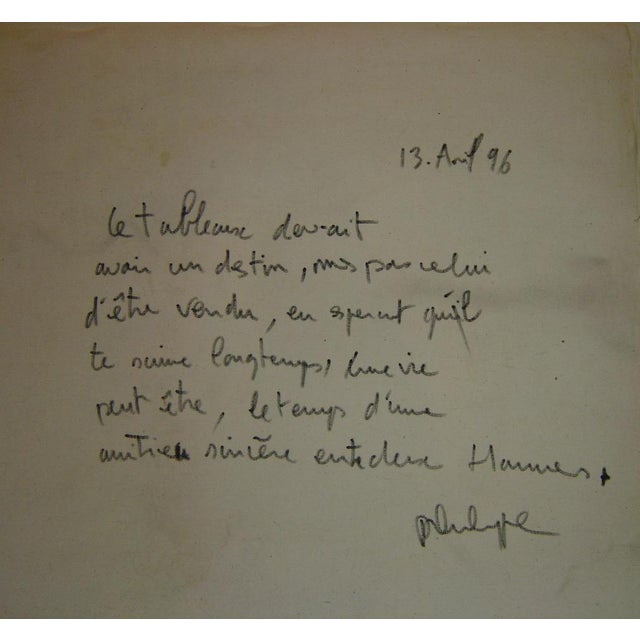 13. Avril 96
Ce tableaux devait
avoir un destin, mais pas celui
d'être vendu, en esperant qu'il
te suive longtemps, une vie
peut être, le temps d'une
amitié sincère entre deux Hommes.